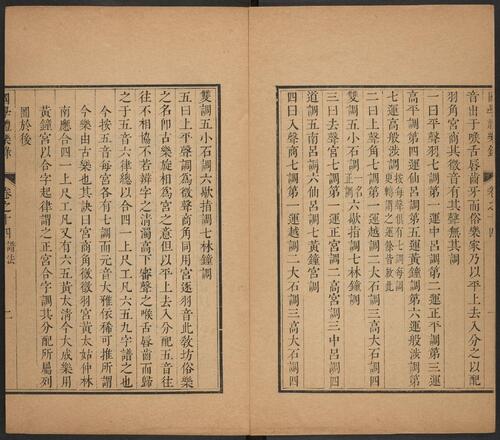 音出于喉舌唇齒牙而俗樂家乃以平上去入分之以配
羽角宮商其徵音有其聲無其調
一曰平聲羽七調第一運中呂調第二運正平調第三運
高平調第四運仙呂調第五運黃鐘調第六運般涉調第
七運高般涉調按每聲俱有七調每調
更轉謂之運餘皆倣此
二曰上聲角七調第一運越調二大石調三高大石調四
雙調五小石調一名
正調六歇指調七林鐘調
三曰去聲宮七調第一運正宮調二高宮調三中呂調四
道調五南呂調六仙呂調七黃鐘宮調
四曰入聲商七調第一運越調二大石調三高大石調四
雙調五小石調六歇指調七林鐘調
五曰上平聲調為徵聲商角同用宮逐羽音此教坊俗樂
之名卽古樂旋相為宮之意但以平上去入分配五音往
往不相協不若辨字之清濁高下審聲之喉舌唇齒而歸
之于五音六律總以合四一上尺工凡六五九字譜之也
今按五音每宮各有七調而元音大雅依稀可推所謂
今樂由古樂也其訣曰宮商角徵徵羽宮黃太姑仲林
南應合四一上尺工凡又有六五黃太清今大成樂用
黃鐘宮以合字起律謂之正宮合字調其分配所屬列
圖於後
卷之十四 譜法